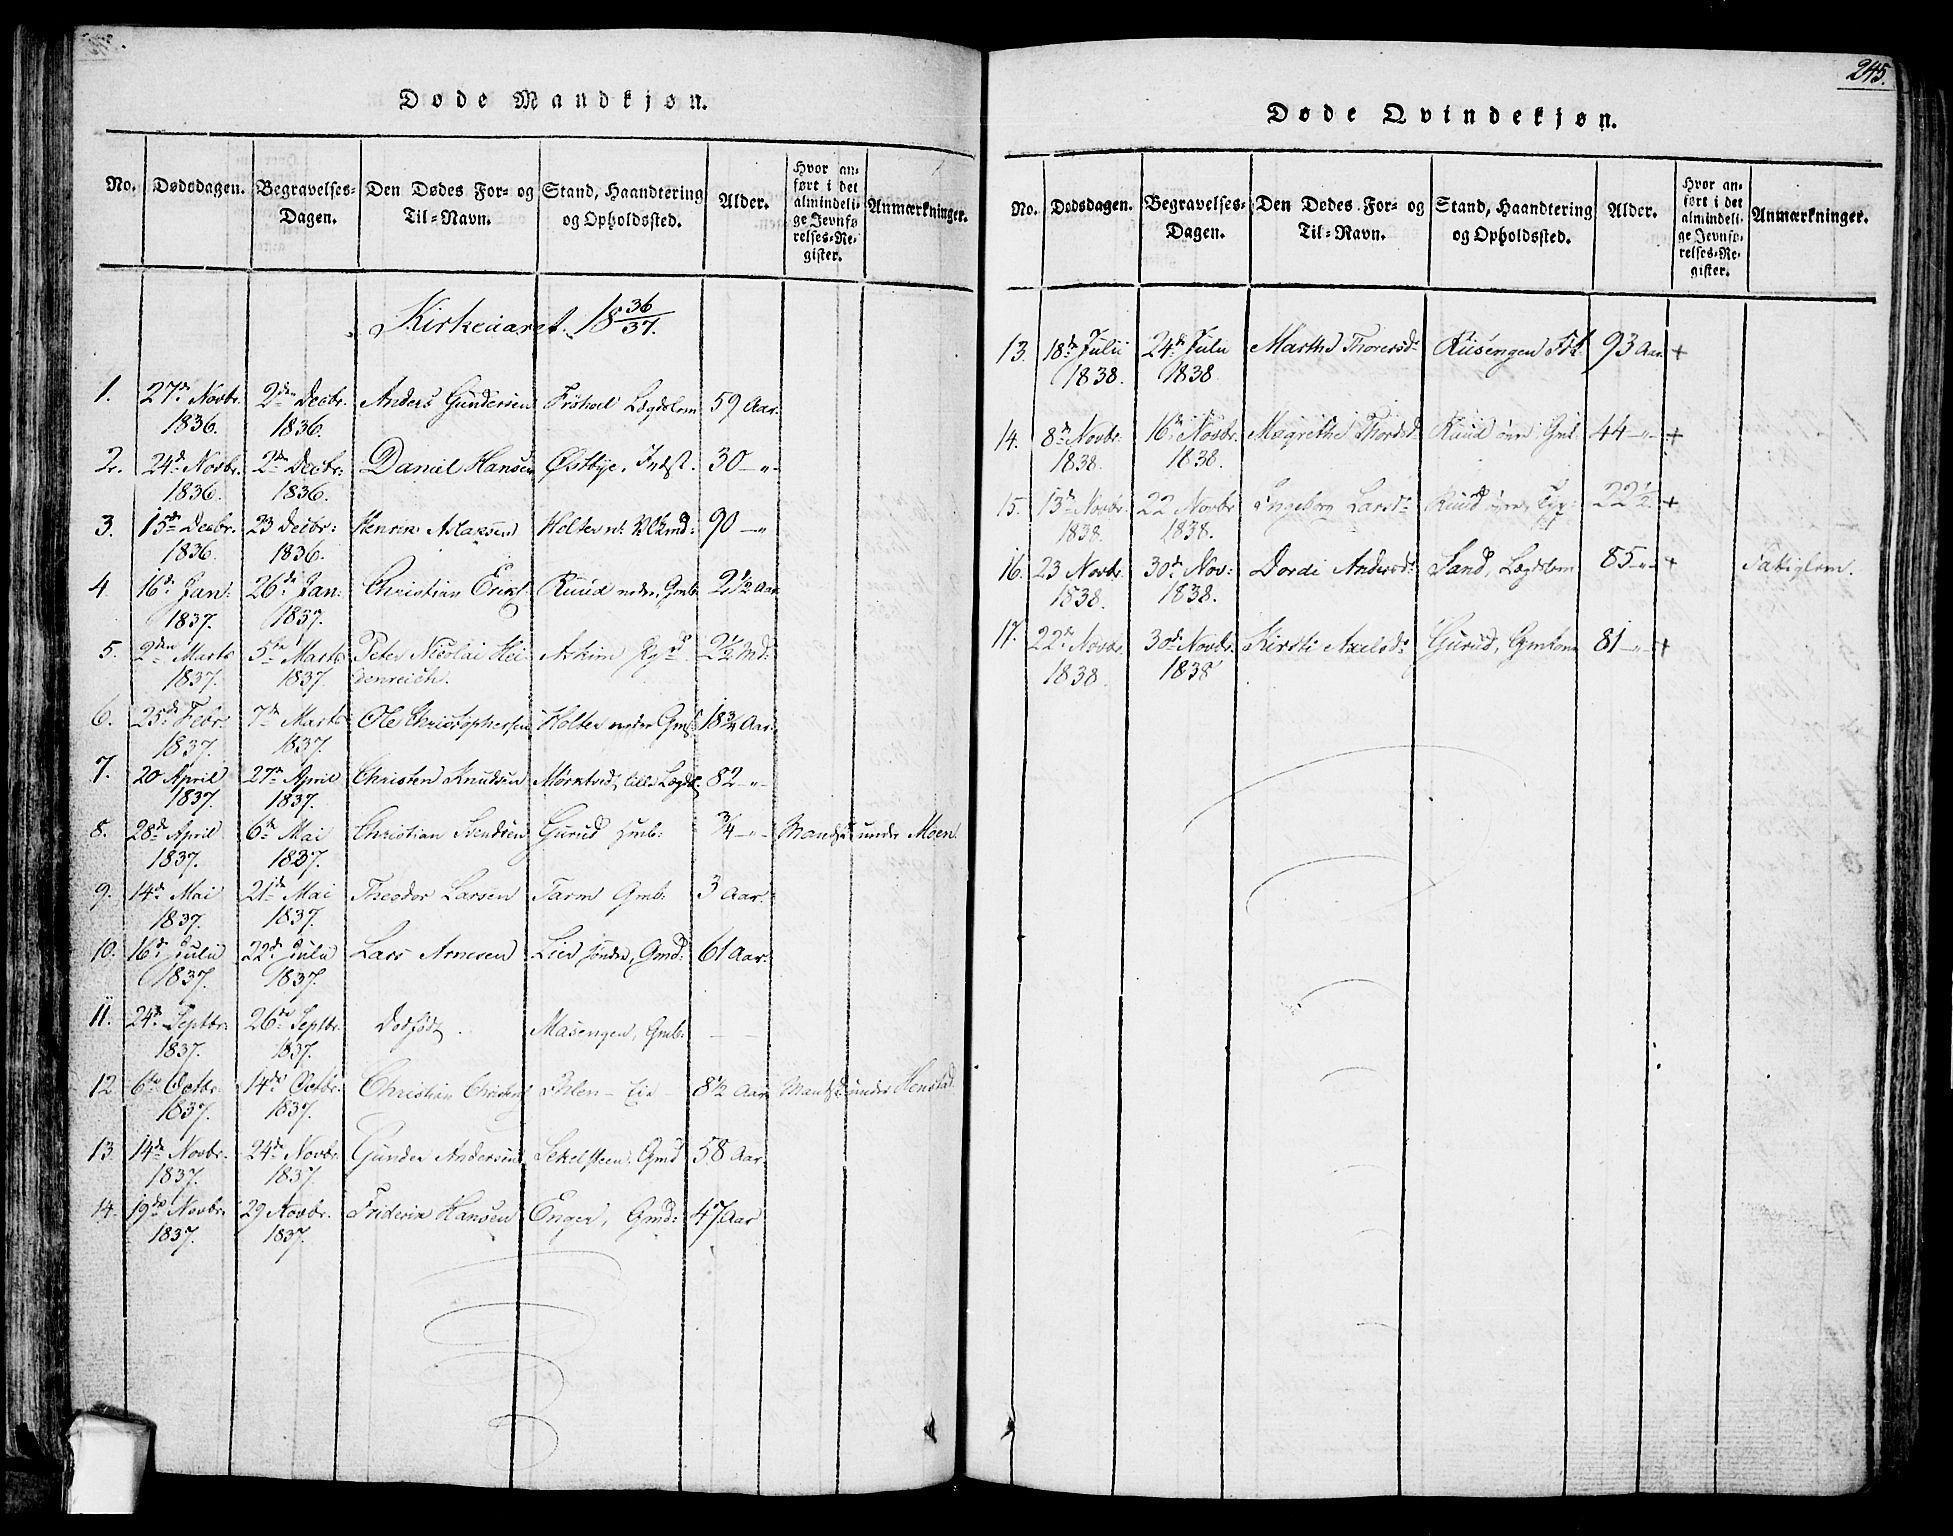 Døde Mandkjøn.
No. Dødsdagen. Begravelses-Dagen. Den Dødes For- og Til-Navn. Stand, Haandtering og Opholdssted. Alder. Hvor anført i det almindelige Jevnførelses-Register. Anmærkninger.
Kirkeaaret 18 36/37.
1. 27de Novbr. 2den Decbr. Anders Gundersen Lægdslem 59 Aar.
1836. 1836.
2. 24de Novbr. 2den Decbr. Daniel Hansen Østbye, Indst. 30 –"–
1836. 1836.
3. 15de Decbr. 23 Decbr: Henrik Aslaksen Holter 90 –"
1836. 1836.
4 16de Jan: 26de Jan: Christian Eriks. Ruud nedre, Gmb. 2 1/2 Aar
1837. 1837.
5. 2den Marts 5te Marts Peter Nicolai Hei- Askim 2 1/2 Md:
1837. 1837. denreich.
6. 25de Febr. 7de Marts Ole Christophersen Holter nedre Gmb. 18 3/4 Aar.
1837. 1837.
7. 20 April 27de April Christen Knudsen Mørkved, lille Lægdsl. 82 –"–
1837. 1837.
8. 28de April 6te Mai Christian Svendsen Gurud Gmb: 3/4 –"– under Moen
1837. 1837.
9. 14de Mai 21de Mai Theodor Larsen Tarm Gmb: 3 Aar.
1837. 1837.
10. 16de Julii 22de Julii Lars Arnesen Lier søndre, Gmd: 61 Aar.
1837. 1837.
11. 24de Septbr. 26de Septbr. Dødfødt. Masengen, Gmb: – –
1837. 1837.
12 6te Octbr. 14de Octbr. Christian Christens. 8 1/2 Aar under Henstad.
1837. 1837.
13. 14de Novbr. 24de Novbr. Gunder Andersen Sekelsteen, Gmd 58 Aar.
1837. 1837.
14. 19de Novbr. 29 Novbr. Friderik Hansen Enger, Gmd: 47 Aar
1837. 1837.
245.
Døde Qvindekjøn.
No. Dødsdagen. Begravelses-Dagen. Den Dødes For- og Til-Navn. Stand, Haandtering og Opholdssted. Alder. Hvor anført i det almindelige Jevnførelses-Register. Anmærkninger.
13. 18de Julii 24de Julii Marthe Thorersd. Riisengen 93 Aar +
1838. 1838
14. 8de Novbr. 16de Novbr. Magrethe Thordsd. Ruud øvre 44 –"– +
1838. 1838.
15. 13de Novbr. 22 Novbr Ingeborg Larsd. Ruud øvre 22 1/2 +
1838. 1838.
16. 23 Novbr. 30de Nov: Dordi Andersd. Sand, Lægdslem 85 –"– + Fattiglem.
1838. 1838.
17. 22de Novbr. 30de Novbr. Kirsti Axelsd. Gurud, Gmkone 81 –"– +
1838. 1838